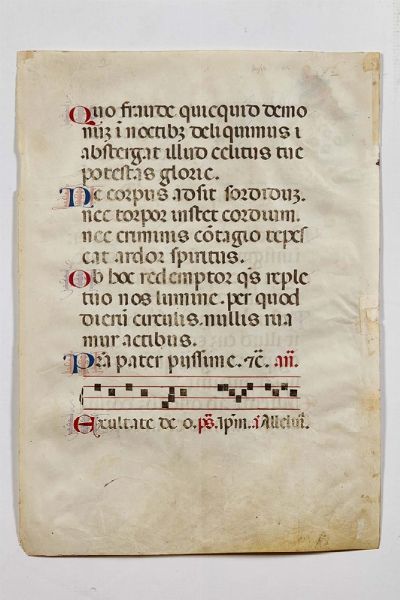 Quo fraude quicquid demo
nuz i noctibz deliquimus
abstergat illud celitus tue
potestas glorie.
Ne corpus adsit sordiduz.
nec torpor instet cordium.
nec criminis cōtagio tepes
cat ardor spiritus.
Ob hoc redemptor qs reple
tuo nos lumine. per quod
dierū circulis. nullis rua
mur actibus.
Pta pater piissime. ⁊c̄. añ.
Exultate de o. ps. ipm. a Alleluia